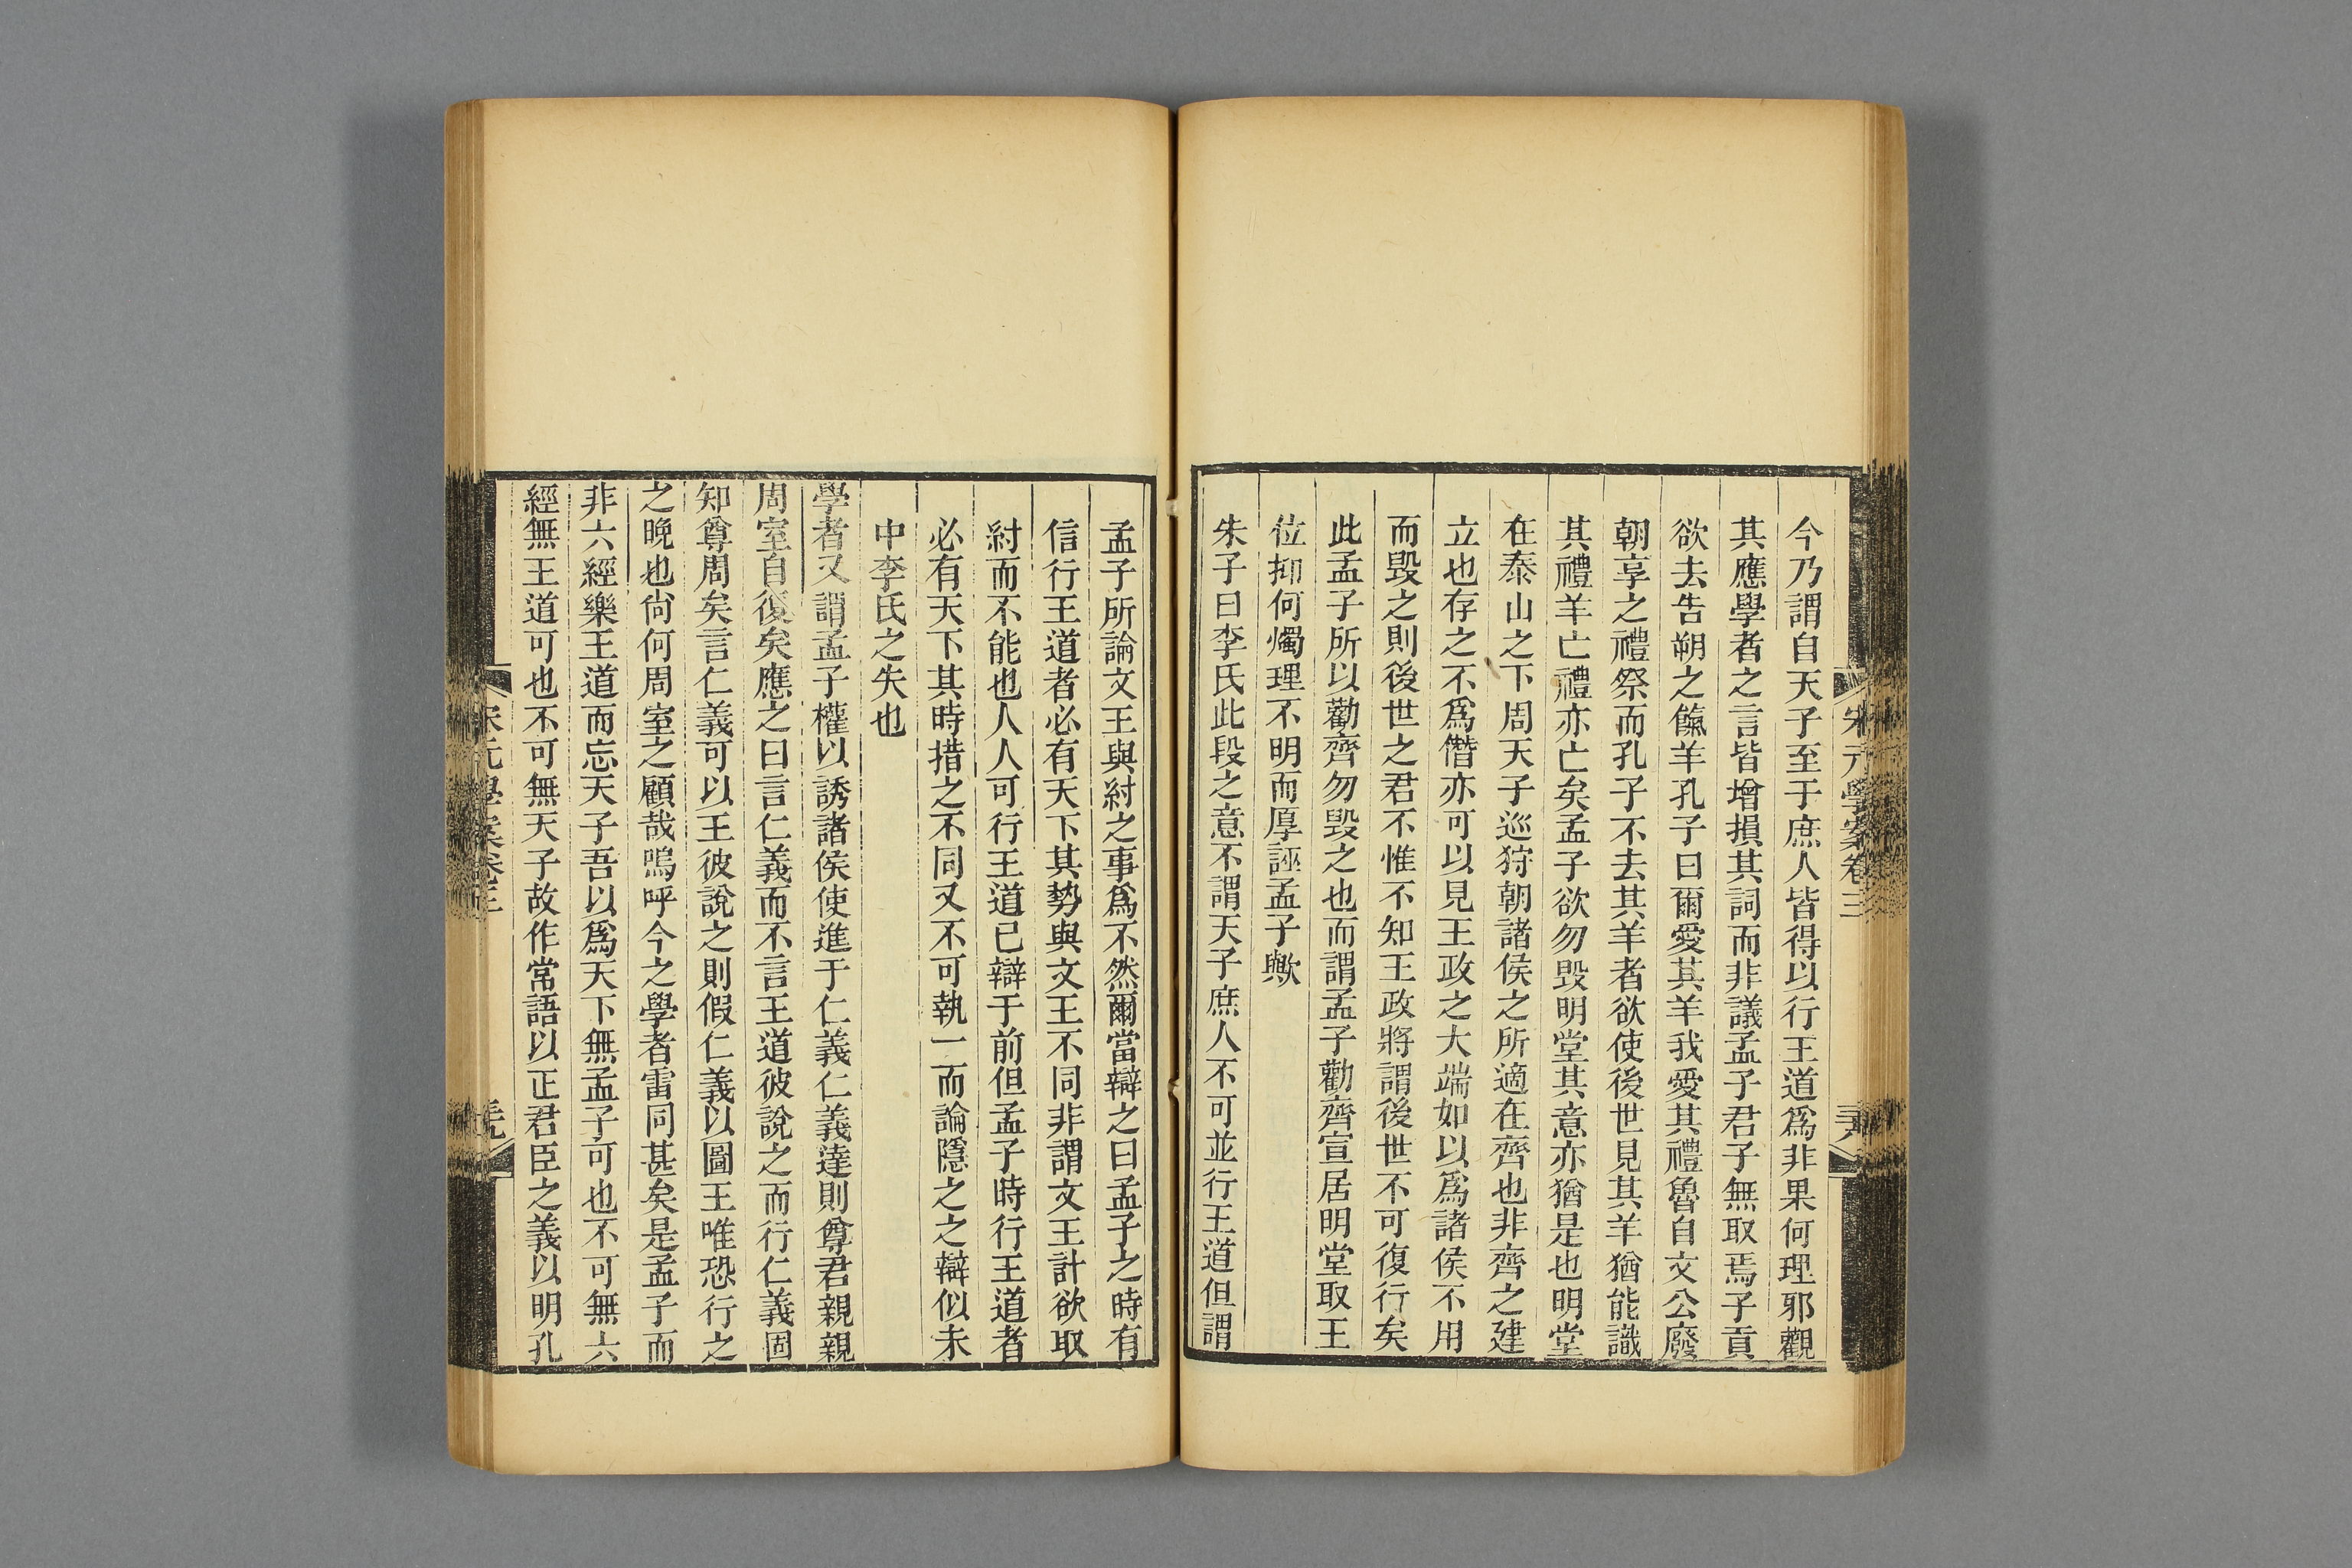 今乃謂自天子至于庶人皆得以行王道爲非果何理邪觀
其應學者之言皆增損其詞而非議孟子君子無取焉子貢
欲去告朔之餼羊孔子曰爾愛其羊我愛其禮魯自文公廢
朝享之禮祭而孔子不去其羊者欲使後世見其羊猶能識
其禮羊亡禮亦亡矣孟子欲勿毀明堂其意亦猶是也明堂
在泰山之下周天子巡狩朝諸侯之所適在齊也非齊之建
立也存之不爲僭亦可以見王政之大端如以爲諸侯不用
而毀之則後世之君不惟不知王政將謂後世不可復行矣
此孟子所以勸齊勿毀之也而謂孟子勸齊宣居明堂取王
位抑何燭理不明而厚誣孟子歟
朱子曰李氏此段之意不謂天子庶人不可並行王道但謂
宋元學案卷三
孟子所論文王與紂之事爲不然爾當辯之曰孟子之時有
信行王道者必有天下其勢與文王不同非謂文王計欲取
紂而不能也人人可行王道已辯于前但孟子時行王道者
必有天下其時措之不同又不可執一而論隱之之辯似未
中李氏之失也
學者又謂孟子權以誘諸侯使進于仁義仁義達則尊君親親
周室自復矣應之曰言仁義而不言王道彼說之而行仁義固
知尊周矣言仁義可以王彼說之則假仁義以圖王唯恐行之
之晚也尚何周室之顧哉嗚呼今之學者雷同甚矣是孟子而
非六經樂王道而忘天子吾以爲天下無孟子可也不可無六
經無王道可也不可無天子故作常語以正君臣之義以明孔
宋元學案卷三